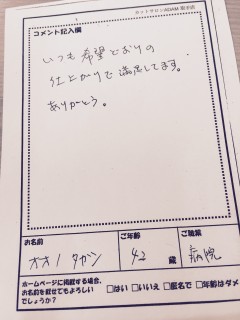 カットサロンADAM 取手店
コメント記入欄
いつも希望どおりの
仕上がりで満足してます。
ありがとう。
お名前 ご年齢 ご職業
オオノ タガシ 42 歳 病院
ホームページに掲載する場合、
お名前を載せてもよろしい
でしょうか?
□はい □いいえ □匿名で □年齢はダメ